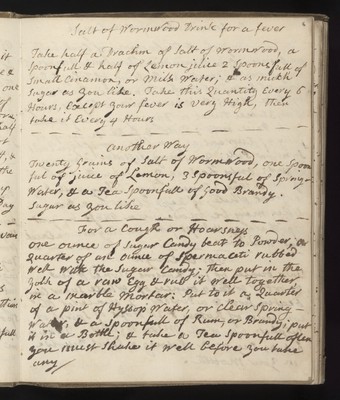 Salt of Wormwood Drink for a fever
Take half a Drachm of Salt of Wormwood, a
Spoonfull & half of Lemon juice 2 Spoonsfull of
Small Cinamon, or Milk Water; & as much
Sugar as you like. Take this Quantity Every 6
Hours, Except your fever is very High, Then
take it Every 4 Hours
Another Way
Twenty Grains of Salt of Wormwood, one Spoon
ful of juice of Lemon, 3 Spoonful of Spring-
Water, & a Tea Spoonfull of Good Brandy.
Sugar as you like
For a Cough or Hoarsness
one ounce of Sugar Candy beat to Powder, a
Quarter of an ounce of Spermaceti rubbed
well with the Sugar Candy; then put in the
yolk of a raw Egg & rub it well together
in a marble Mortar. Put to it a Quarter
of a pint of Hyssop Water, or Clear Spring-
Water, & a Spoonfull of Rum, or Brandy; put
it in a Bottle; & take a Tea Spoonfull often
you must Shake it well before you take
any